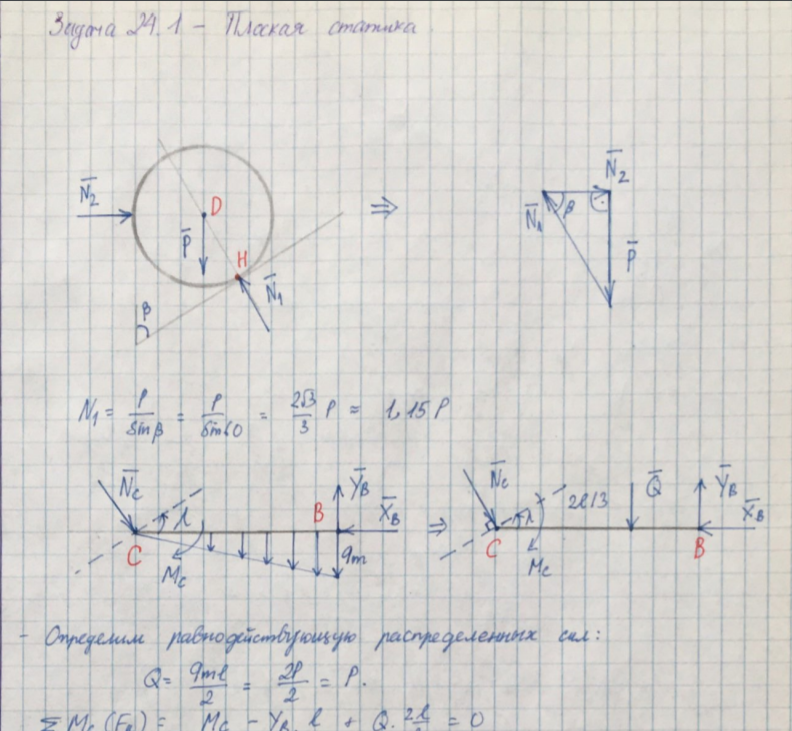 Задача 24.1 – Плоская статика
N̅₂ D P̅ H N̅₁ β ⇒ N̅₂ N̅₁ β P̅
N₁ = P/sinβ = P/sin60 = 2√3/3 P = 1,15 P
N̅c λ B Y̅B X̅B C Mc qm ⇒ N̅c λ 2l/3 Q̅ Y̅B X̅B C Mc B
- Определим равнодействующую распределенных сил:
Q = qml/2 = 2P/2 = P.
Σ Mc (Fк) = Mc – YB · l + Q · 2l/ = 0